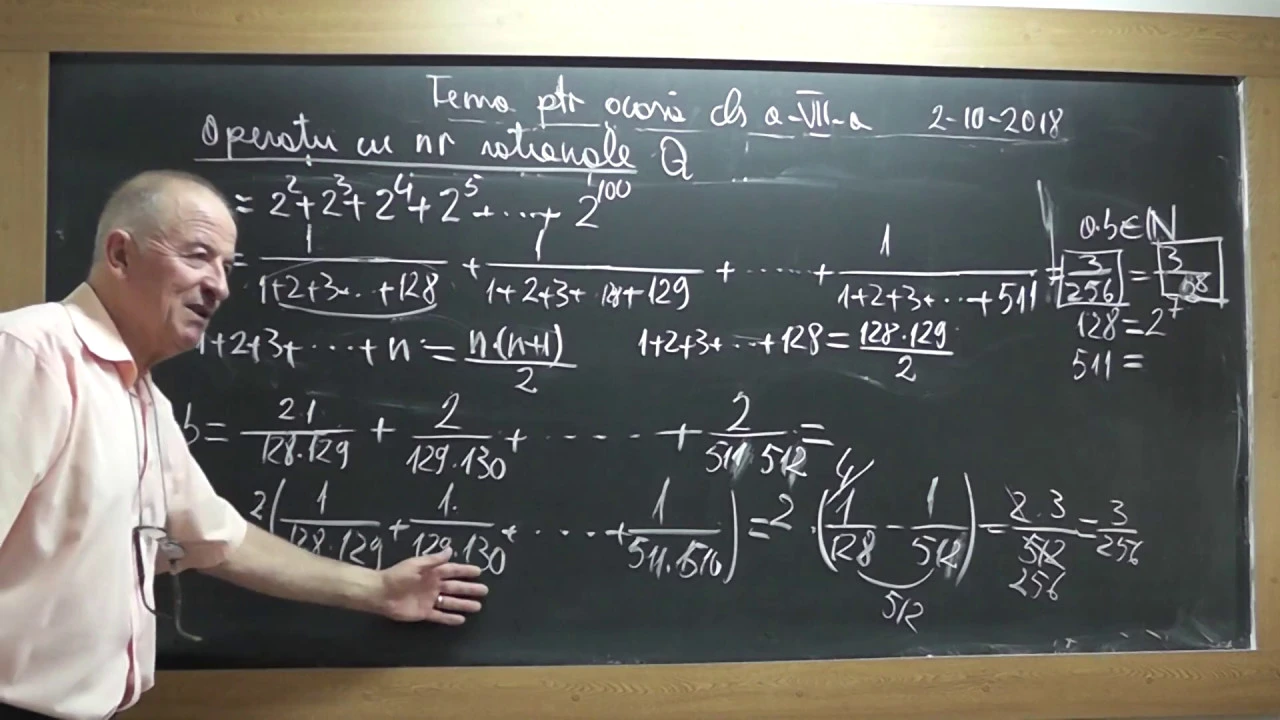 Tema ptr acasă cls a-VII-a 2-10-2018
Operatii cu nr rationale Q
= 2² + 2³ + 2⁴ + 2⁵ + ... + 2¹⁰⁰
a·b ∈ N
= 1/(1+2+3+...+128) + 1/(1+2+3+...+129) + ..... + 1/(1+2+3+...+511) = 3/256 = 3/
128 = 2⁷
1+2+3+...+n = n·(n+1)/2 1+2+3+...+128 = 128·129/2
511 =
b = 2·1/128·129 + 2/129·130 + ..... + 2/511·512 =
2(1/128·129 + 1/129·130 + ..... + 1/511·) = 2·(⁴⁾1/128 − 1/512) = 2·3/512 = 3/256
512
256